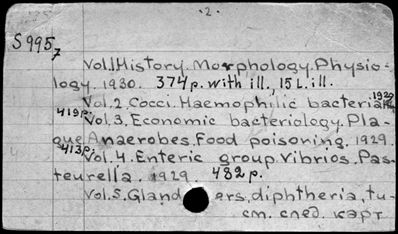 ·2·
S 995
7
Vol.1 History. Morphology. Physio-
logy. 1930. 374 p. with ill., 15 L. ill.
Vol. 2. Cocci. Haemophilic bacteria 1929
419 p. Vol. 3. Economic bacteriology. Pla-
que Anaerobes. Food poisoning. 1929.
413 p. Vol. 4. Enteric group. Vibrios. Pas-
teurella. 1929. 482 p.
Vol. 5. Gland ers, diphtheria, tu-
см. след. карт